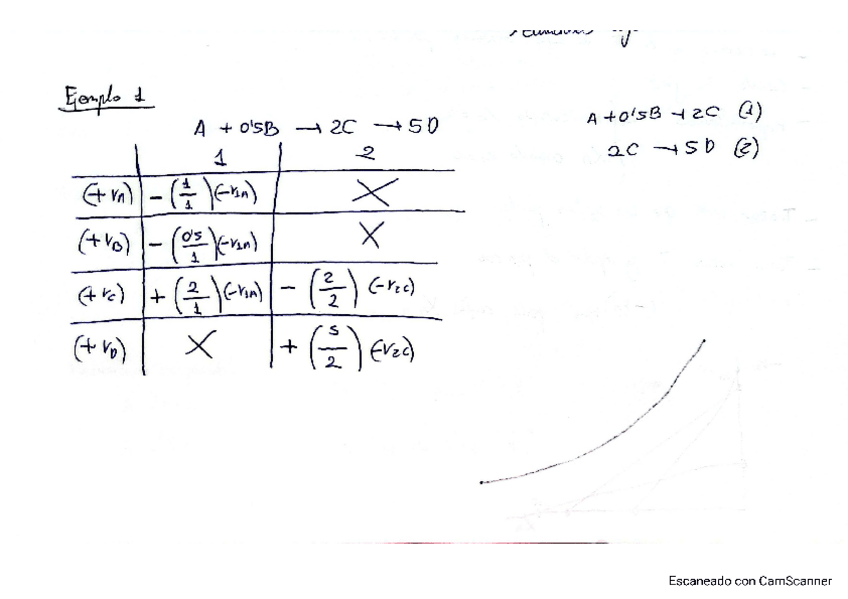 Ejemplo 1
A + 0'5B → 2C → 5D
A + 0'5B → 2C (1)
2C → 5D (2)
1 2
(+rA) - (1/1)(-r1A) X
(+rB) - (0'5/1)(-r1A) X
(+rC) + (2/1)(-r1A) - (2/2) (-r2C)
(+rD) X + (5/2) (-r2C)
Escaneado con CamScanner